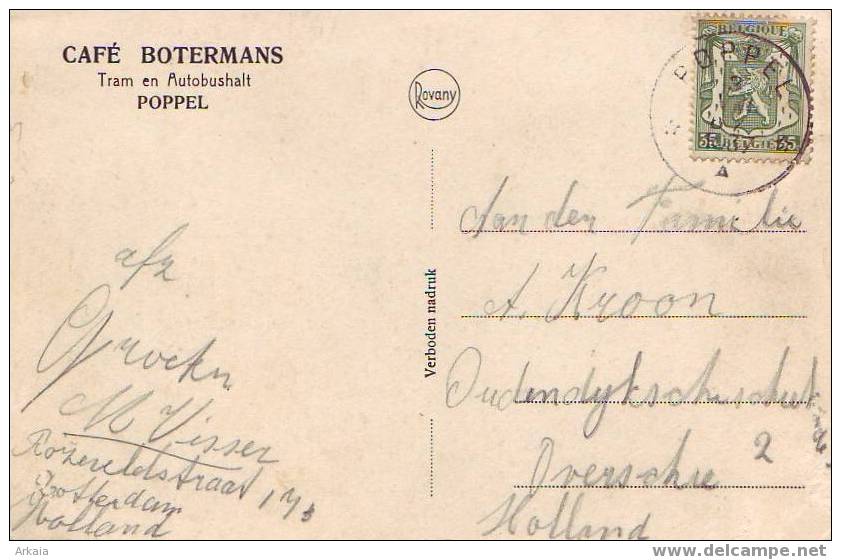 CAFÉ BOTERMANS
Tram en Autobushalt
POPPEL
Rovany
BELGIQUE
POPPEL
35 BELGIE 35
Verboden nadruk
afz
M Visser
Rotterdam
Holland
Aan den Familie
A. Kroon
2
Overschie
Holland
Arkaia
www.delcampe.net